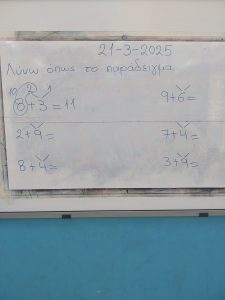 21-3-2025
Λύνω όπως το παράδειγμα
10 2 1
8+3=11 9+6=
2+9= 7+4=
8+4= 3+9=